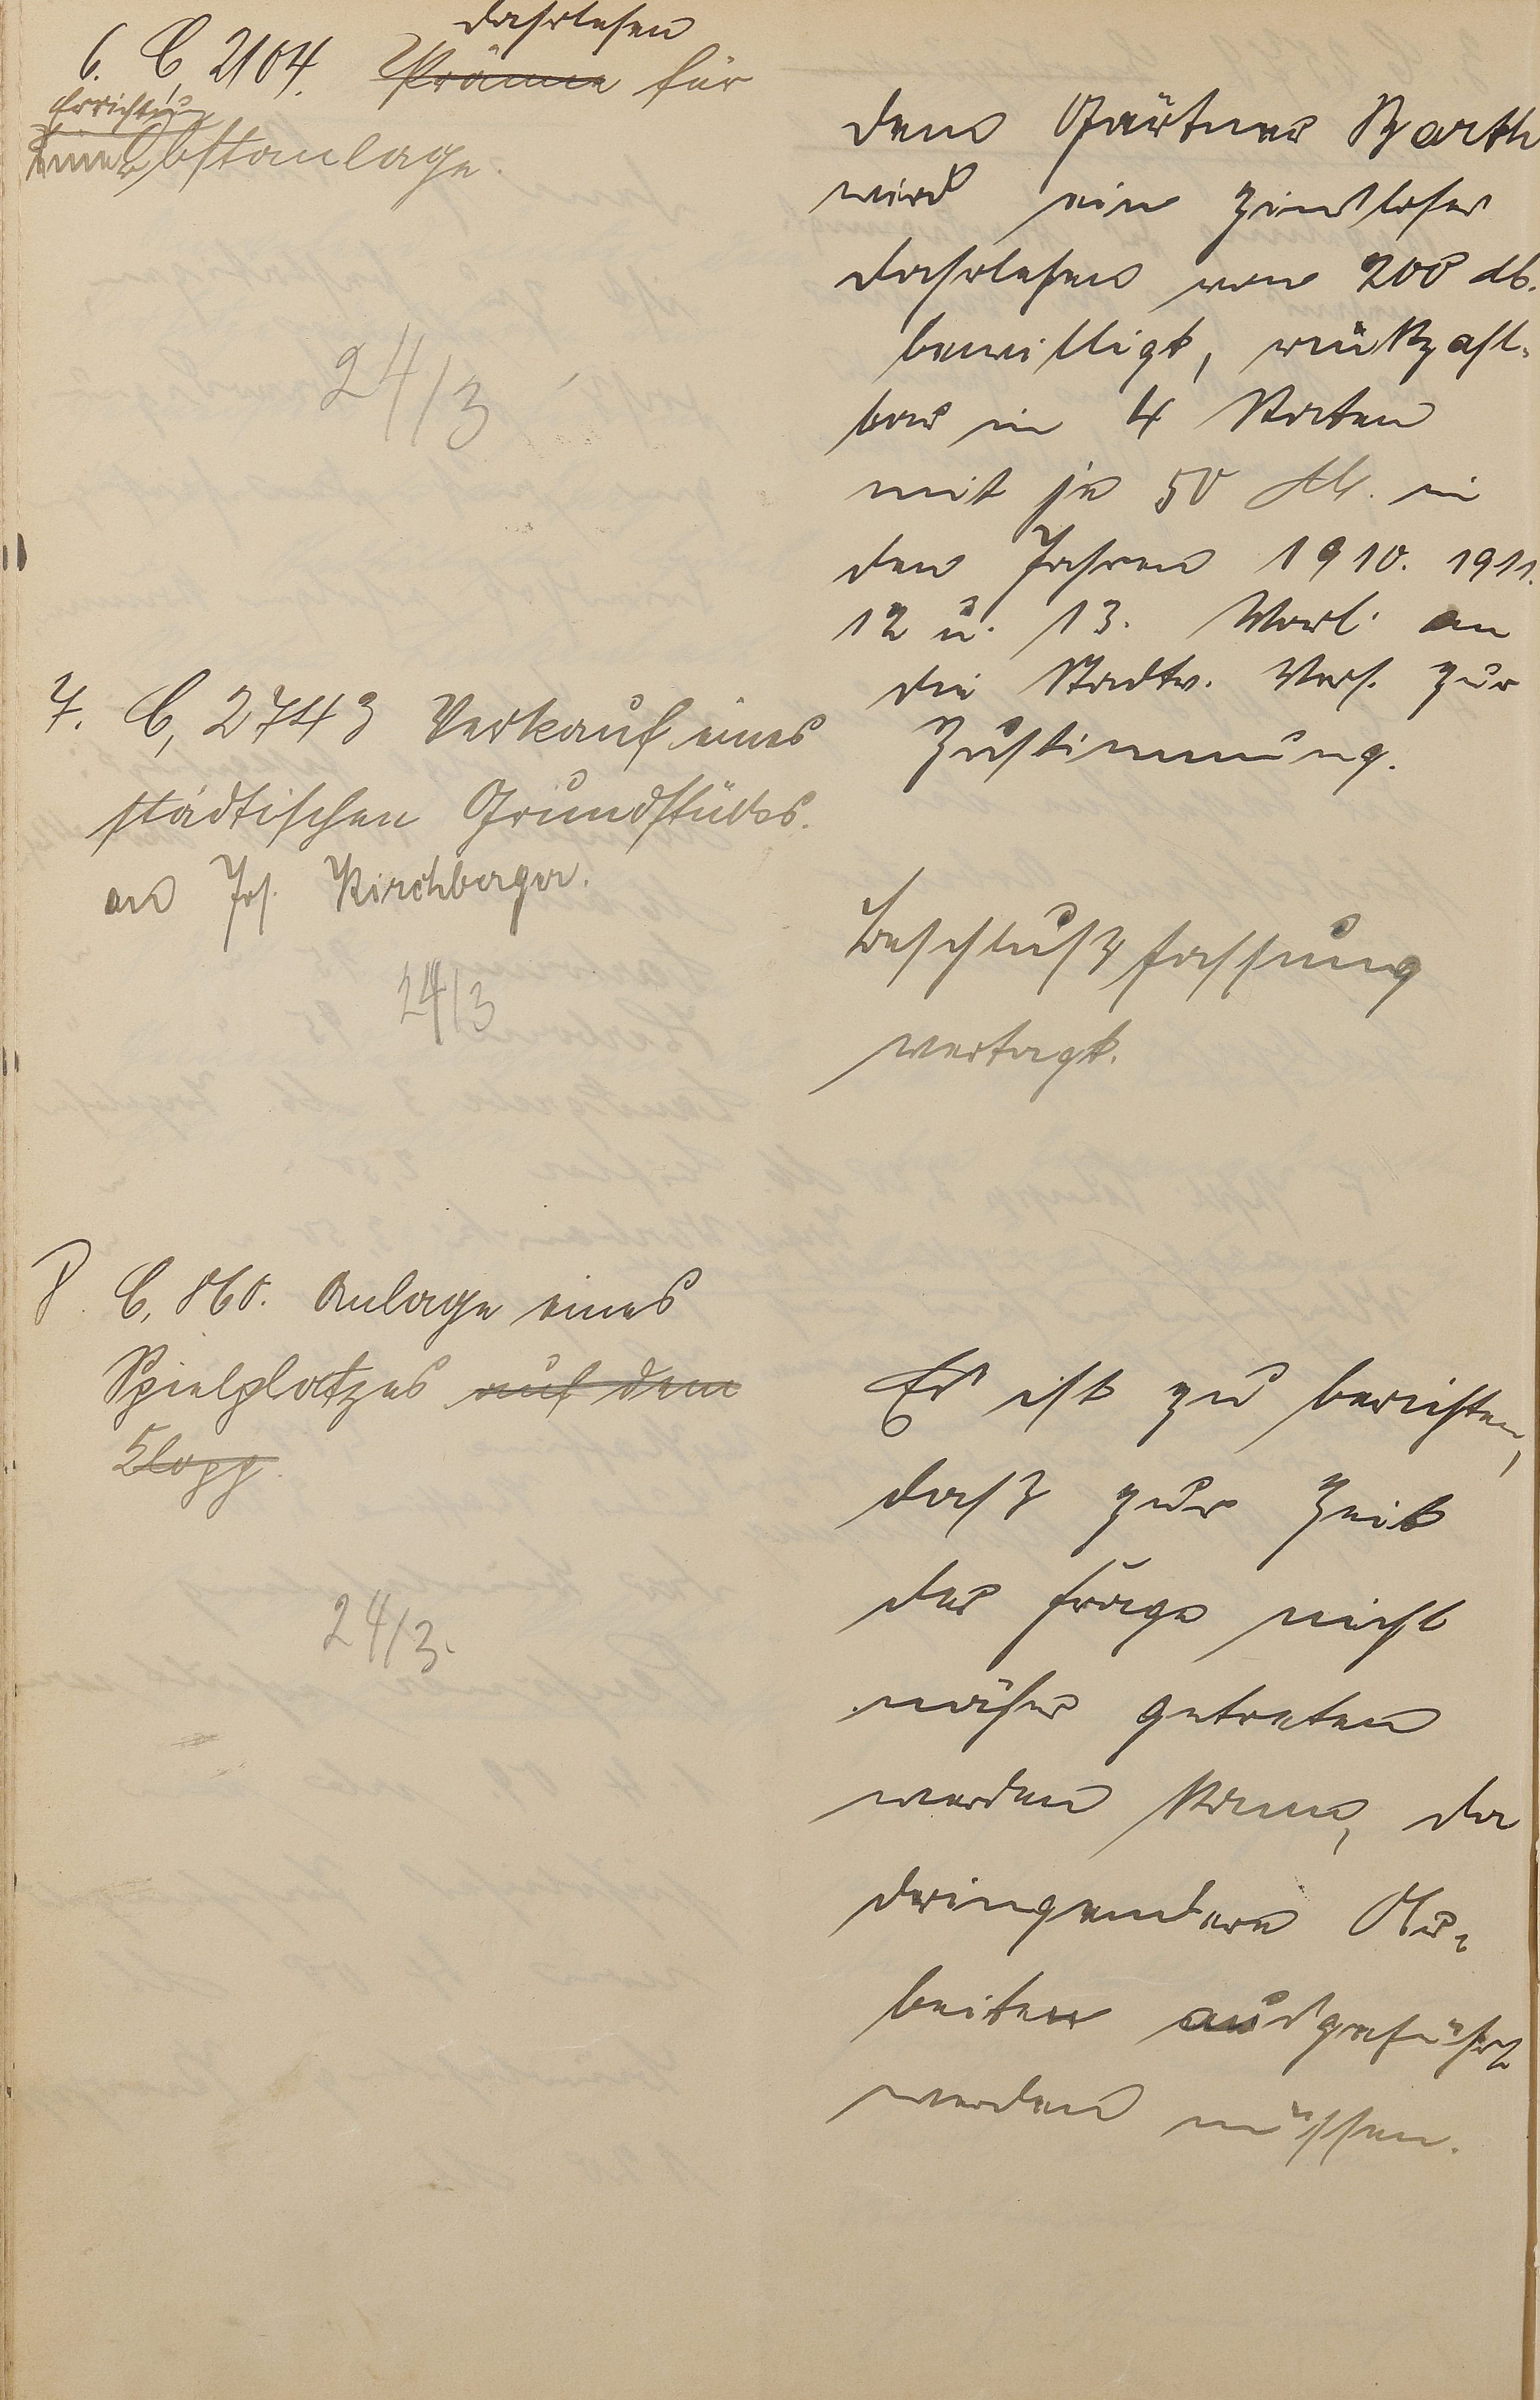 6. C, 2104. Prämie für
Darlehen
Errichtung
einer Obstanlage.
24/3
Dem Gärtner Barth
wird ein zinsloses
Darlehen von 200 M.
bewilligt, rückzahl-
bar in 4 Raten
mit je 50 M. in
den Jahren 1910. 1911.
12 u. 13. Vorl. an
die Stadtv. Vers. zur
Zustimmung.
7. C, 2743 Verkauf eines
städtischen Grundstücks
an Jos. Kirchberger.
24/3
Beschlußfassung
vertagt.
8. C, 860. Anlage eines
Spielplatzes auf dem
Klopp.
24/3.
Es ist zu berichten,
daß zur Zeit
der Frage nicht
näher getreten
werden kann, da
dringendere Ar-
beiten ausgeführt
werden müssen.